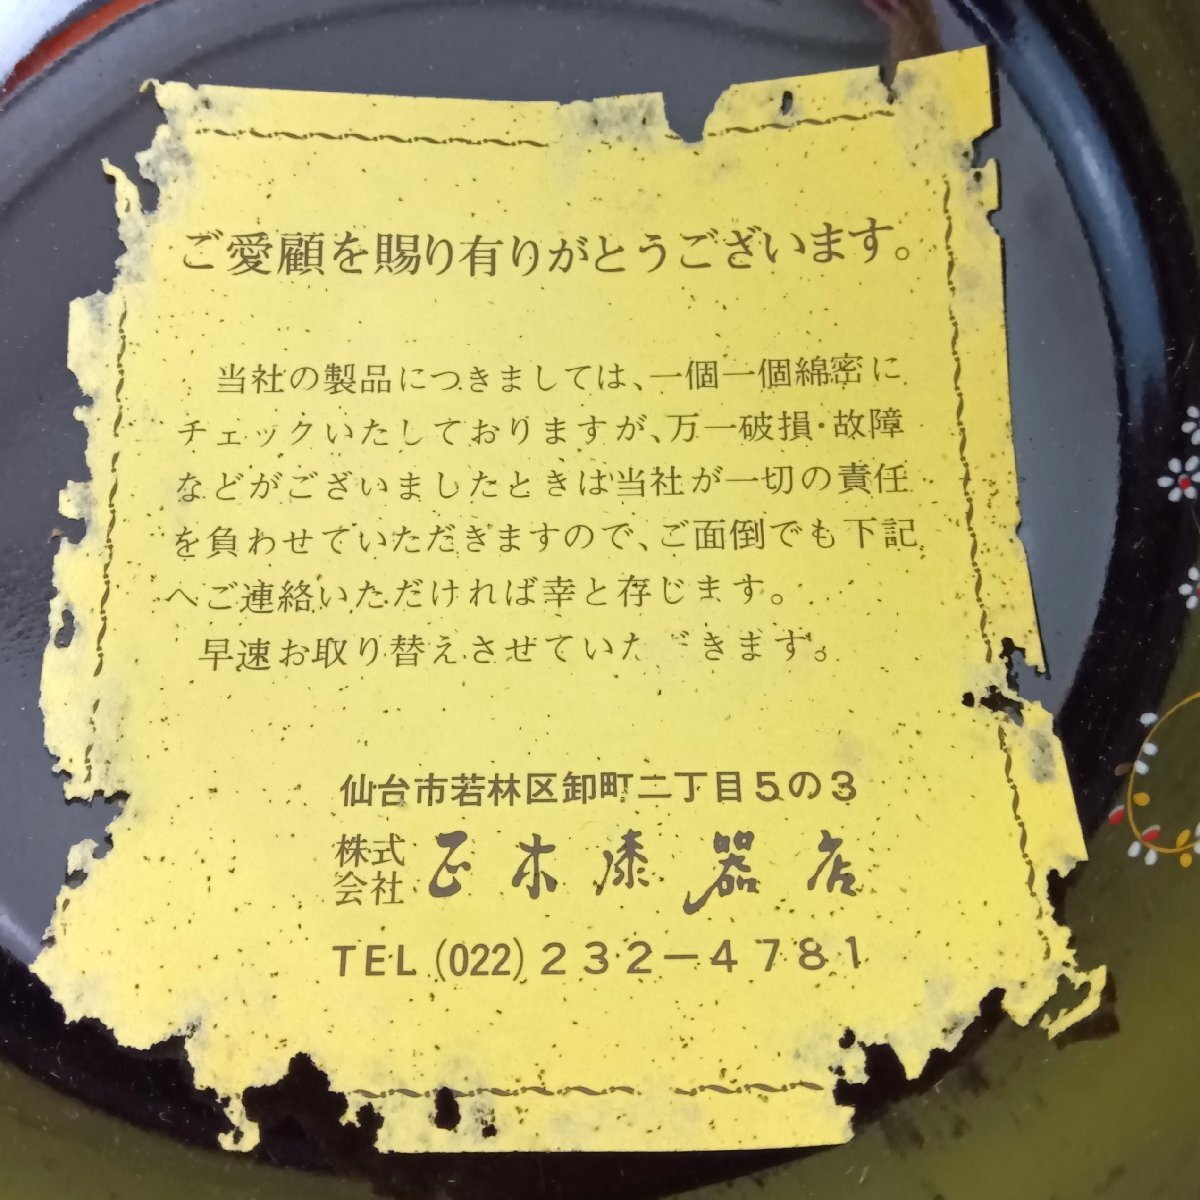 ご愛顧を賜り有りがとうございます。
当社の製品につきましては、一個一個綿密に
チェックいたしておりますが、万一破損・故障
などがございましたときは当社が一切の責任
を負わせていただきますので、ご面倒でも下記
へご連絡いただければ幸と存じます。
早速お取り替えさせていただきます。
仙台市若林区卸町二丁目5の3
株式
会社 正木漆器店
TEL(022)232-4781